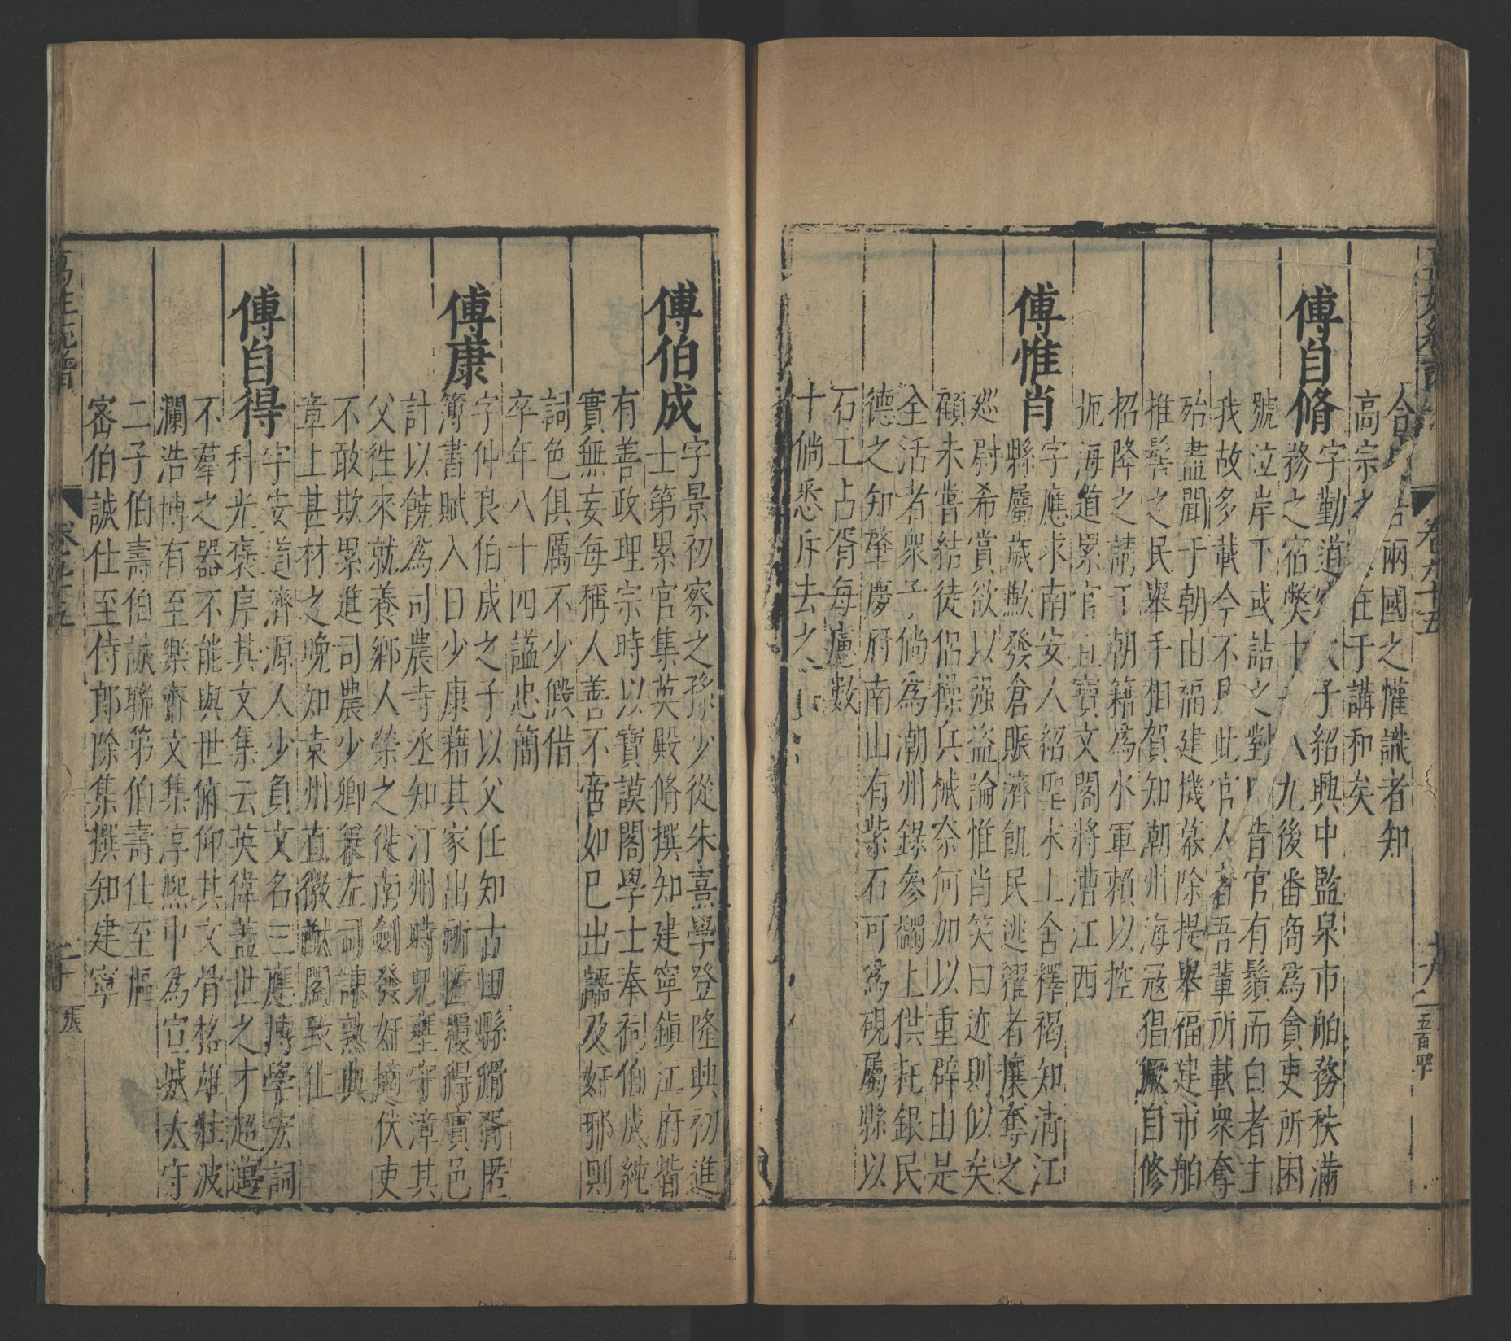 合 兩國之懽識者知
高宗之 在于講和矣
傅自脩
字勤道 子紹興中監泉市舶務秩滿
務之宿獘十 八九後番商爲貪吏所困
號泣岸下或詰之對 昔官有鬚而白者主
我故多載今不 此官人者吾輩所載衆奪
殆盡聞于朝由福建機幕除提舉福建市舶
椎髻之民舉手相賀知潮州海冦猖厥自修
招降之請于朝籍爲水軍賴以控
扼海道累官直寶文閣將漕江西
傅惟肖
字應求南安人紹 末上舍釋褐知清江
縣屬歲歉發倉賑濟飢民逃糴者攘奪之
廵尉希賞欲以强盗論惟肖笑曰迹則似矣
顧未嘗結徒侶操兵械柰何加以重辟由是
全活者衆子倘爲潮州錄參蠲上供秏銀民
德之知肇慶府南山有紫石可爲硯屬縣以
石工占胥每 數
十倘悉斥去之
傅伯成
字景初察之孫少從朱熹學登隆興初進
士第累官集英殿脩撰知建寧鎮江府皆
有善政理宗時以寶謨閣學士奉祠伯成純
實無妄每稱人善不啻如已出語及奸邪則
詞色俱厲不少假借
卒年八十四謚忠簡
傅康
字仲良伯成之子以父任知古田縣猾胥匿
簿書賦入日少康藉其家出所匿覆得實邑
計以饒爲司農寺丞知汀州時兄壅守漳其
父徃來就養鄉人榮之徙南劍發奸擿伏吏
不敢欺累進司農少卿兼左司諫熟典
章上甚材之晚知袁州直徽猷閣致仕
傅自得
字安道濟源人少負文名三應博學宏詞
科光裒序其文集云英偉蓋世之才超邁
不羣之器不能與世俯仰其文骨格雄壮波
瀾浩博有至樂齋文集淳熙中爲宣城太守
二子伯壽伯誠聯第伯壽仕至樞
密伯誠仕至侍郎除集撰知建寧
卷之